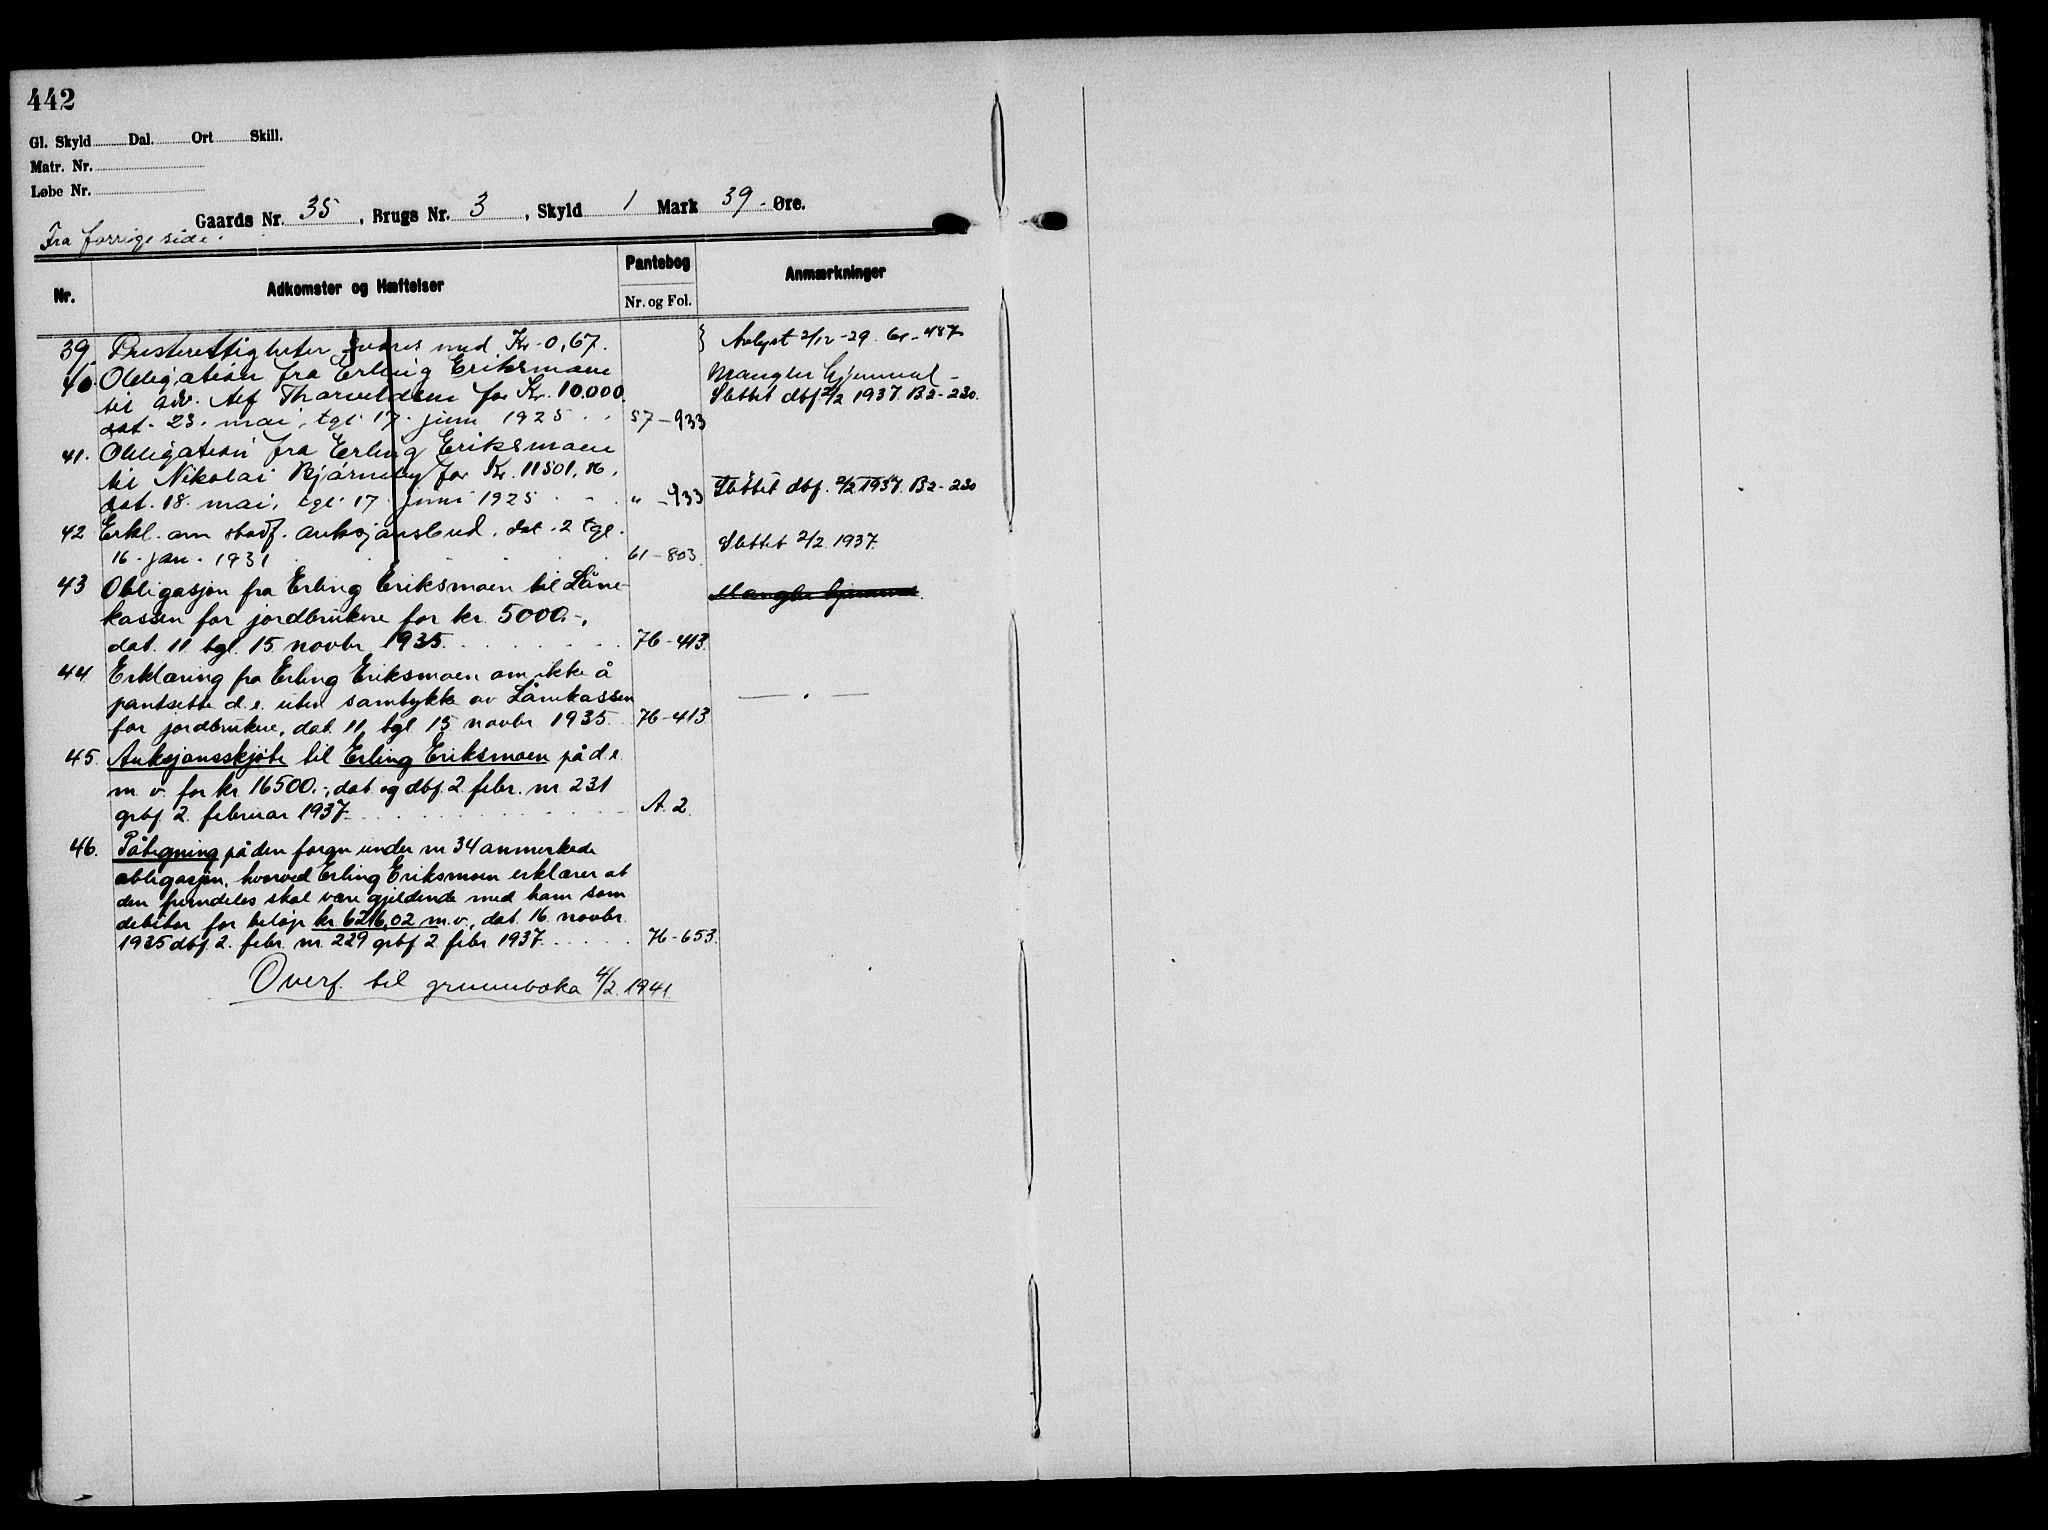 442
Gl. Skyld Dal. Ort Skill.
Matr. Nr.
Løbe Nr.
Gaards Nr. 35, Brugs Nr. 3, Skyld 1 Mark 39. Øre.
Fra forrige side.
Nr. Adkomster og Hæftelser Pantebog Nr. og Fol. Anmærkninger
39 Presterettigheter svares med Kr. 0,67. } Avlyst 2/12-29. 61-487
40. Obligation fra Erling Eriksmoen Mangler hjemmel-
til adv. Alf Thorvaldsen for Kr. 10.000. Slettet dbf. 2/2 1937. B2-230.
dat. 23. mai, tgl. 17. juni 1925 57-933
41. Obligation fra Erling Eriksmoen
til Nikolai Bjørneby for Kr. 11501,86,
dat. 18. mai, tgl. 17. juni 1925 " -933 Slettet dbf. 2/2 1937. B2-230
42 Erkl. om stadf. auksjonsbud. dat. 2 tgl.
16. jan. 1931 61-803. Slettet 2/2 1937.
43 Obligasjon fra Erling Eriksmoen til Låne- Mangler hjemmel.
kassen for jordbrukere for kr. 5000.-,
dat. 11 tgl. 15 novbr. 1935. 76-413.
44 Erklæring fra Erling Eriksmoen om ikke å
pantsette d.e. uten samtykke av Lånekassen — " —
for jordbrukere, dat. 11 tgl 15 novbr 1935. 76-413.
45. Auksjonsskjøte til Erling Eriksmoen på d.e.
m. v. for kr 16500.-, dat. og dbf. 2. febr. nr. 231
grbf. 2. februar 1937. A. 2.
46. Påtegning på den forgn. under nr 34 anmerkede
obligasjon, hvorved Erling Eriksmoen erklærer at
den fremdeles skal være gjeldende med ham som
debitor for beløp kr 6216,02 m.v., dat. 16. novbr.
1935 dbf. 2. febr. nr. 229 grbf 2 febr 1937. 76-653.
Overf. til grunnboka 4/2. 1941.